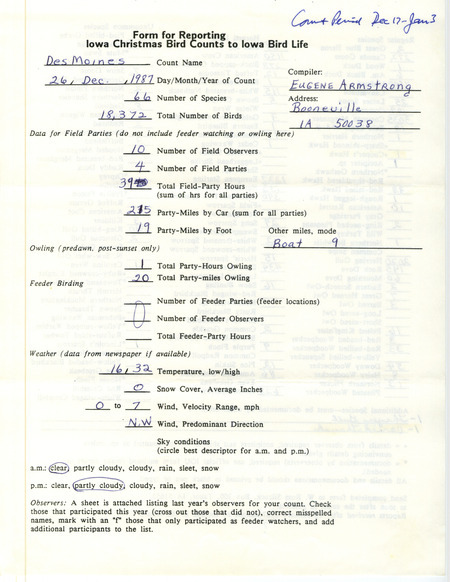 Count Period Dec 17-Jan 3
Form for Reporting
Iowa Christmas Bird Counts to Iowa Bird Life
Des Moines Count Name
26, Dec. ,1987 Day/Month/Year of Count
Compiler:
66 Number of Species
EUGENE ARMSTRONG
Address:
18,372 Total Number of Birds
Booneville
IA 50038
Data for Field Parties (do not include feeder watching or owling here)
10 Number of Field Observers
4 Number of Field Parties
39 Total Field-Party Hours
(sum of hrs for all parties)
215 Party-Miles by Car (sum for all parties)
19 Party-Miles by Foot Other miles, mode
Boat 9
Owling (predawn, post-sunset only)
1 Total Party-Hours Owling
20 Total Party-miles Owling
Feeder Birding
Number of Feeder Parties (feeder locations)
0 Number of Feeder Observers
Total Feeder-Party Hours
Weather (data from newspaper if available)
16, 32 Temperature, low/high
0 Snow Cover, Average Inches
0 to 7 Wind, Velocity Range, mph
N.W Wind, Predominant Direction
Sky conditions
(circle best descriptor for a.m. and p.m.)
a.m.: clear, partly cloudy, cloudy, rain, sleet, snow
p.m.: clear, partly cloudy, cloudy, rain, sleet, snow
Observers: A sheet is attached listing last year's observers for your count. Check
those that participated this year (cross out those that did not), correct misspelled
names, mark with an "f" those that only participated as feeder watchers, and add
additional participants to the list.